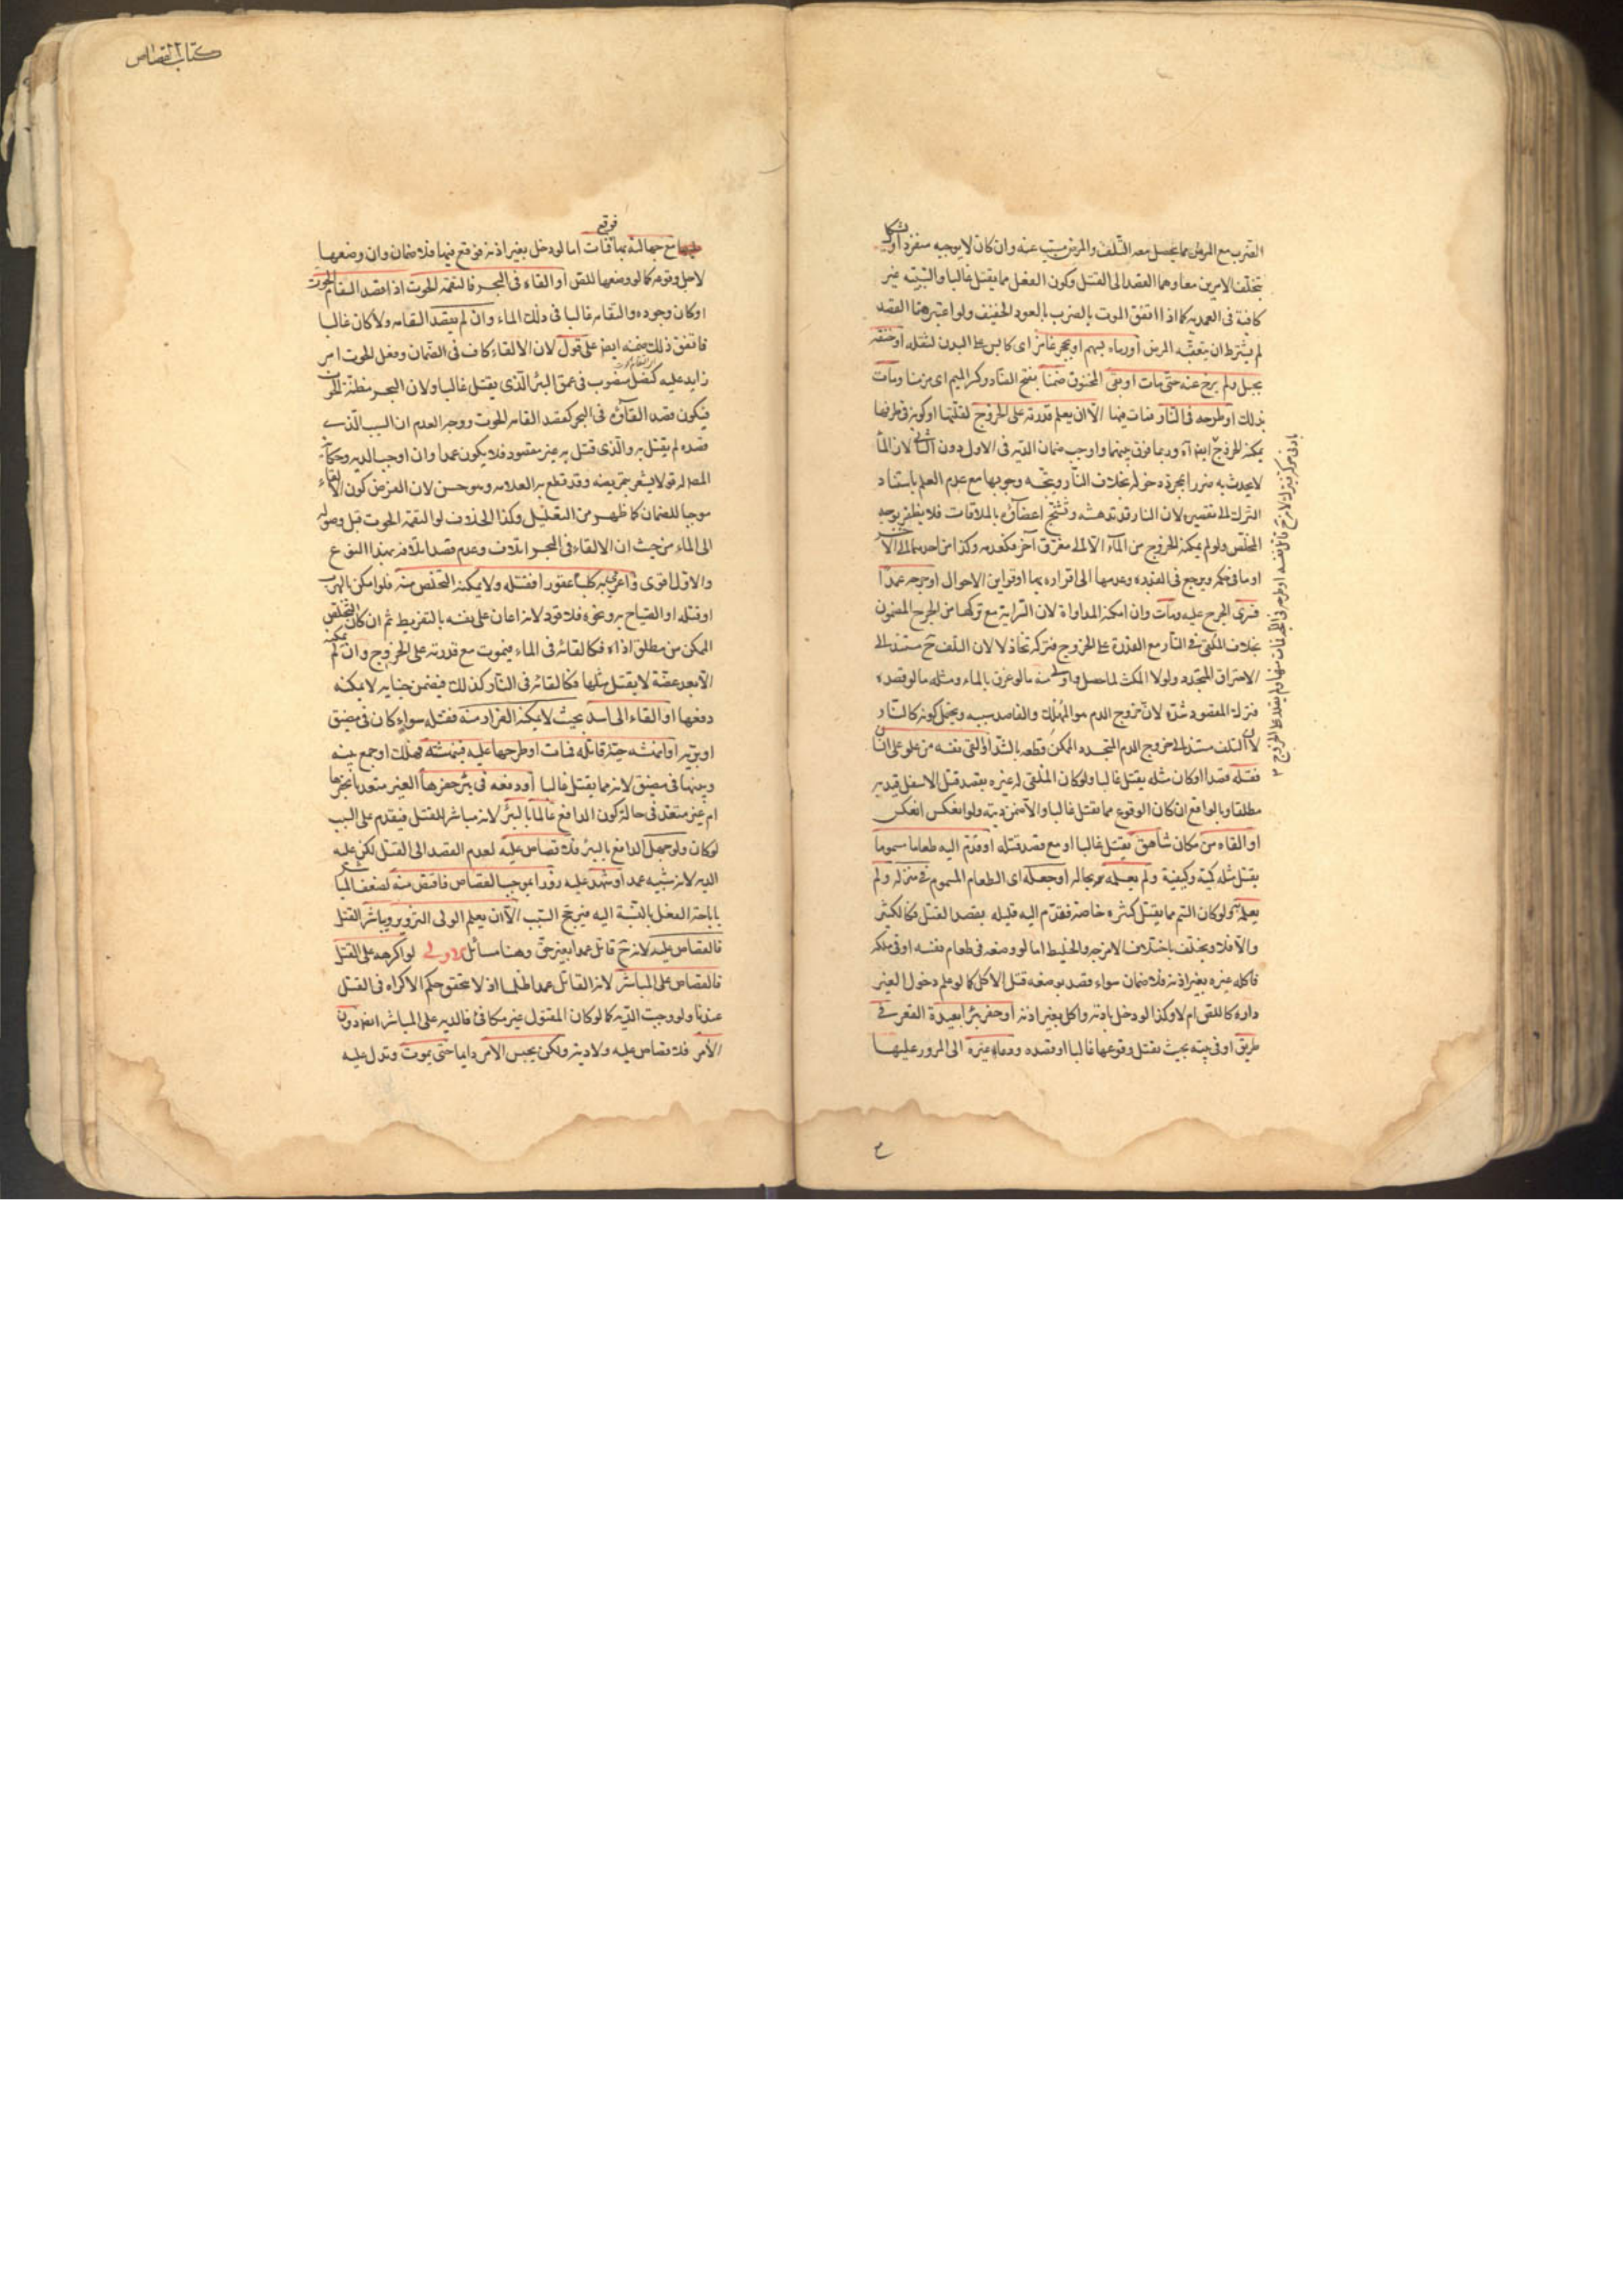 الضرب مع المرض مما يحصل معه التلف والمرض مسبب عنه وان كان لا يوجبه منفردا ويشكل
بتخلف الامرين معا وهما القصد الى القتل وكون الفعل مما يقتل غالبا والسببية غير
كافية فى العمدية كما اذا اتفق الموت بالضرب بالعود الخفيف ولو اعتبر هنا القصد
لم يشترط ان يتعقبه المرض أو رماه بسهم او بحجر غامز اى كابس على البدن لثقله او خنقه
بحبل ولم يرخ عنه حتى مات او بقى المخنوق ضمنا بفتح الضاد وكسر الميم اى مزمنا ومات
بذلك او طرحه فى النار فمات منها الا ان يعلم قدرته على الخروج لقلتها او كونه فى طرفها
يمكنه الخروج بادنى حركة فيترك لانه ح قاتل نفسه او طرحه فى اللجة فمات منها ولم يقدر على الخروج
ايضا وربما فرق بينهما واوجب ضمان الدية فى الاول دون الثانى لان الماء
لا يحدث به ضرر بمجرد دخوله بخلاف النار ويتجه وجوبها مع عدم العلم باستناد
الترك الى تقصيره لان النار قد تدهشه وتشنج اعضاؤه بالملاقات فلا يظفر بوجه
المخلص ولو لم يمكنه الخروج من الماء الا الى مغرق آخر فكعدمه وكذا من احدهما الى الآخر
او ما فى حكمه ويرجع فى القدرة وعدمها الى اقراره بها او قراين الاحوال او جرحه عمدا
فسرى الجرح عليه ومات وان امكنه المداواة لان السراية مع تركها من الجرح المضمون
بخلاف الملقى فى النار مع القدرة على الخروج فتركه تخاذلا لان التلف ح مستند الى
الاحتراق المتجدد ولولا المكث لما حصل واولى منه ما لو غرق بالماء ومثله ما لو فصده
فترك المفصود شده لان خروج الدم هو المهلك والفاصد سببه ويحتمل كونه كالنار
لان التلف مستند الى خروج الدم المتجدد الممكن قطعه بالشد أو القى نفسه من علو على انسان
فقتله قصدا او كان مثله يقتل غالبا ولو كان الملقى له غيره بقصد قتل الاسفل قيد به
مطلقا وبالواقع ان كان الوقوع مما يقتل غالبا والا ضمن ديته ولو انعكس انعكس
او القاه من مكان شاهق يقتل غالبا او مع قصد قتله او قدم اليه طعاما مسموما
يقتل مثله كمية وكيفية ولم يعلمه بحاله او جعله اى الطعام المسموم فى منزله ولم
يعلمه به ولو كان السم مما يقتل كثيره خاصة فقدم اليه قليله بقصد القتل فكالكثير
والا فلا ويختلف باختلاف الامزجه والخليط اما لو وضعه فى طعام نفسه او فى ملكه
فاكله غيره بغير اذنه فلا ضمان سواء قصد بوضعه قتل الآكل كما لو علم دخول الغير
داره كاللص ام لا وكذا لو دخل باذنه واكل بغير اذنه او حفر بئرا بعيدة القعر فى
طريق او فى بيته بحيث يقتل وقوعها غالبا او قصده ودعاه غيره الى المرور عليها
كتاب القصاص
مع جهالته بها فوقع فمات اما لو دخل بغير اذنه فوقع فيها فلا ضمان وان وضعها
لاجل وقوعه كما لو وضعها للص أو القاه فى البحر فالتقمه الحوت اذا قصد التقام الحوت
او كان وجوده والتقامه غالبا فى ذلك الماء وان لم يقصد التقامه ولا كان غالبا
فاتفق ذلك ضمنه ايضا على قول لان الالقاء كاف فى الضمان وفعل الحوت امر
زايد عليه كنصل منصوب فى عمق البئر الذى يقتل غالبا ولان البحر مظنة الحوت
فيكون قصد القائه فى البحر كقصد القامه الحوت ووجه العدم ان السبب الذى
قصده لم يقتل به والذى قتل به غير مقصود فلا يكون عمدا وان اوجب الدية وحكايته
المص له قولا يشعر بتمريضه وقد قطع به العلامه وهو حسن لان الغرض كون الالقاء
موجبا للضمان كما ظهر من التعليل وكذا الخلاف لو التقمه الحوت قبل وصوله
الى الماء من حيث ان الالقاء فى البحر اتلاف وعدم قصد اتلافه بهذا النوع
والاول اقوى واغرى به كلبا عقورا فقتله ولا يمكنه التخلص منه فلو امكن بالهرب
او قتله او الصياح به ونحوه فلا قود لانه اعان على نفسه بالتفريط ثم ان كان التخلص
الممكن من مطلق اذاه فكالقائه فى الماء فيموت مع قدرته على الخروج وان لم يمكنه
الا بعد عضة لا يقتل مثلها فكالقائه فى النار كذلك فيضمن جناية لا يمكنه
دفعها او القاه الى اسد بحيث لا يمكنه الفرار منه فقتله سواء كان فى مضيق
او برية او انهشه حية قاتله فمات او طرحها عليه فنهشته فهلك او جمع بينه
وبينها فى مضيق لانه مما يقتل غالبا أو دفعه فى بئر حفرها الغير متعديا بحفرها
ام غير متعد فى حالة كون الدافع عالما بالبئر لانه مباشر للقتل فيقدم على السبب
لو كان ولو جهل الدافع بالبئر فلا قصاص عليه لعدم القصد الى القتل لكن عليه
الدية لانه شبيه عمد او شهد عليه زورا بموجب القصاص فاقتص منه لضعف المباشر
باباحة الفعل بالنسبة اليه فيرجح السبب الا ان يعلم الولى التزوير ويباشر القتل
فالقصاص عليه لانه ح قاتل عمدا بغير حق وهنا مسائل الاولى لو اكرهه على القتل
فالقصاص على المباشر لانه القاتل عمدا ظلما اذ لا يتحقق حكم الاكراه فى القتل
عندنا ولو وجبت الدية كما لو كان المقتول غير مكافئ فالدية على المباشر ايضا دون
الآمر فلا قصاص عليه ولا دية ولكن يحبس الآمر دايما حتى يموت وتدل عليه